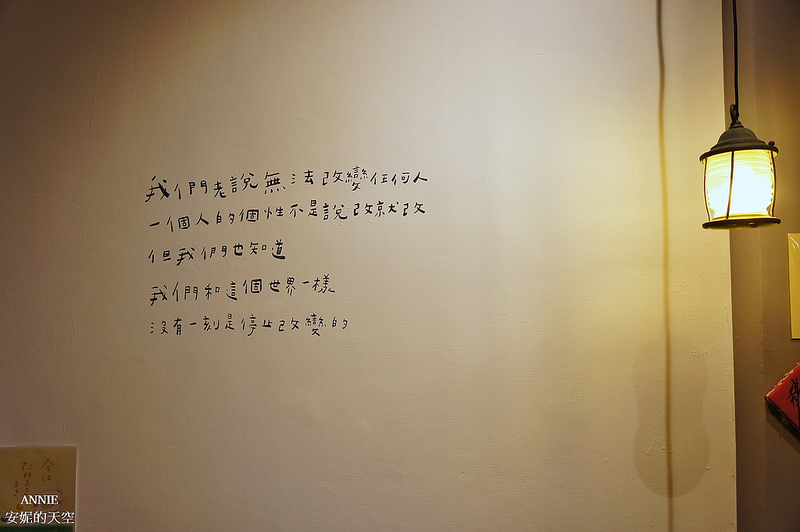 我們老說無法改變任何人
一個人的個性不是說改就改
但我們也知道
我們和這個世界一樣
沒有一刻是停止改變的
今は
ANNIE
安妮的天空